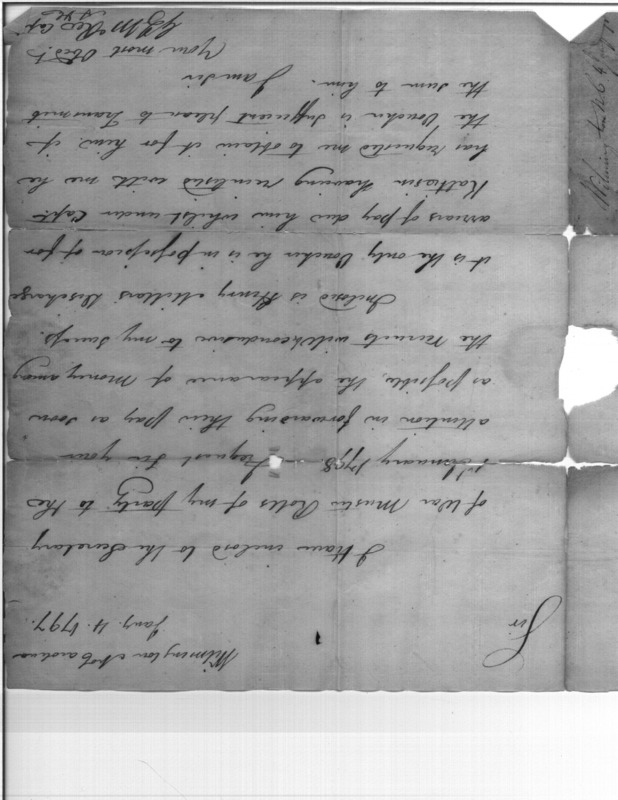 Wilmington No Carolina
Jany. 4. 1797.
Sir
I Have inclos'd to the Secretary
of War Muster Rolls of my party, to the
1 January 1798. I request Sir your
attention in forwarding their pay as soon
as possible, the appearance of Money among
the recruits will conducive to my Success.
Inclosed is Henry Millars Discharge
it is the only Voucher he is in possession of for
arrears of pay due him whilst under Capt.
Kalteisen having reinlisted with me he
has requested me to obtain it for him. if
the Voucher is sufficient please to Transmit
the sum to him.
I am Sir
Your most Obdt.
McRee Capt
Wilmington N.C. 4